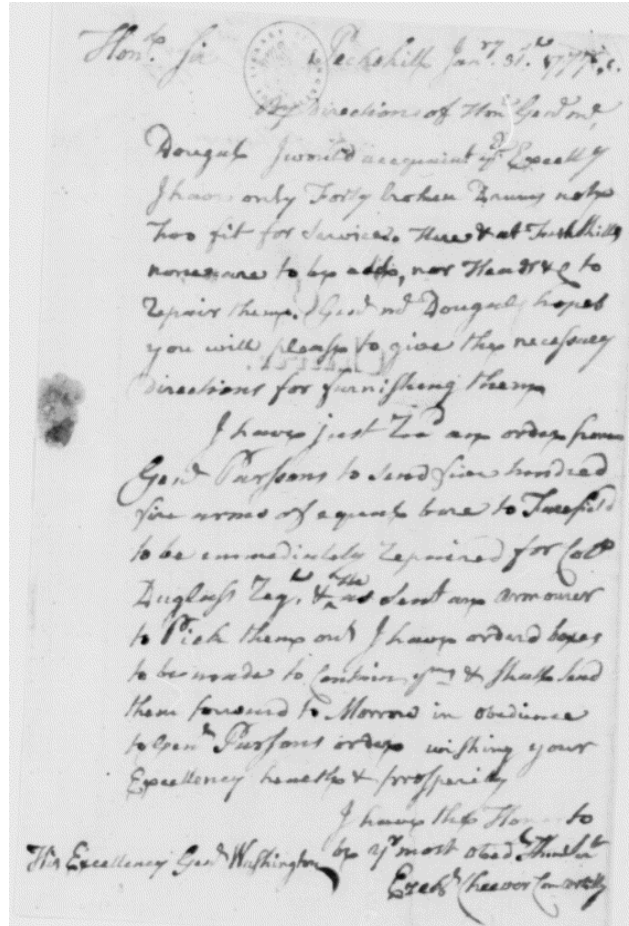 Hon.d Sir Peekskill Jan.ry 31.st 1777.
By Directions of Hon.l Gen.l Mc
Dougal I would acquaint y.r Excell.y
I have only Forty broken Drums not
two fit for Service. Here & at Fishkills
none are to be had, nor Heads &c to
repair them. Gen.l Mc Dougal hopes
you will please to give the necessary
Directions for furnishing them
I have just Rec.d an order from
Gen.l Parsons to send five hundred
fire arms of equal bore to
to be immediately repaired for Col.o
Duglass Reg.t & he has sent an armourer
to Pick them out I have orderd boxes
to be made to Contain y.m & shall send
them forward to Morrow in obedience
to Gen.l Parsons order wishing your
Excellency health & prosperity
I have the Honor to
be y.r most obed.t Hum.l Ser.t
His Excellency Gen.l Washington
Ezek.l Cheever Com Artilly